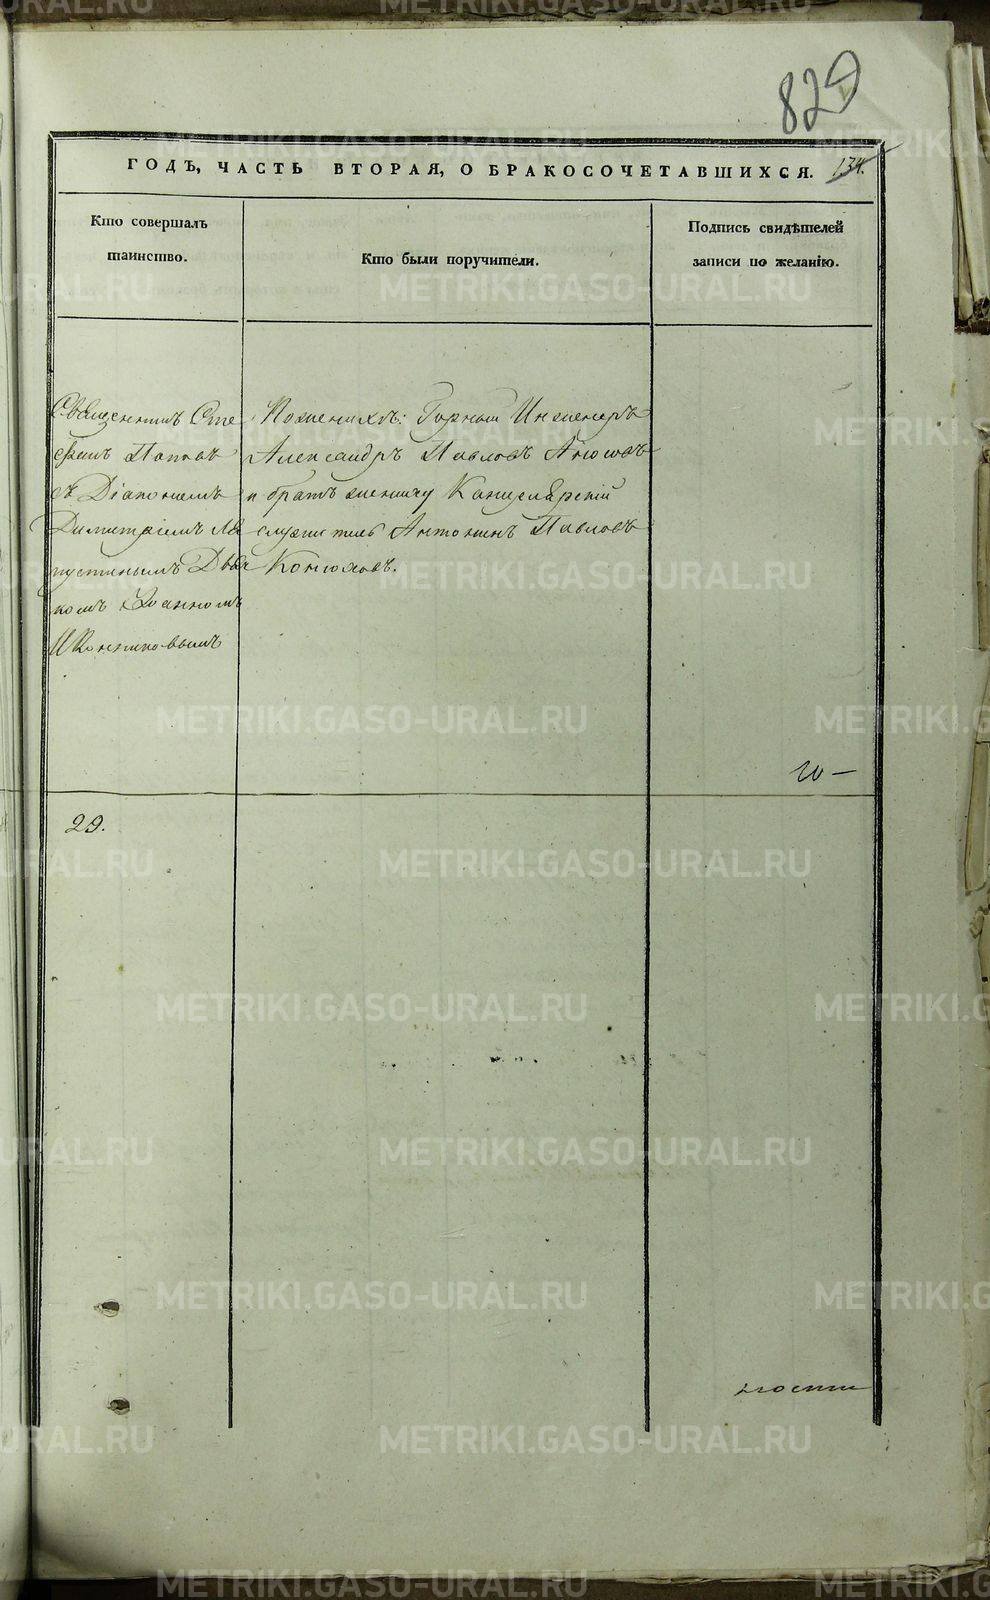 829
ГОДЪ, ЧАСТЬ ВТОРАЯ, О БРАКОСОЧЕТАВШИХСЯ. 134.
Кто совершалъ
таинство.
Кто были поручители.
Подпись свидѣтелей
записи по желанію.
Священникъ Сте
фанъ Поповъ
съ Діакономъ
Димитріемъ Ла
пустинымъ Дьяч
комъ Іоанномъ
Иконниковымъ
По женихѣ: Горный Инженеръ
Александръ Павловъ Аносовъ
и братъ жениху Канцелярскій
служитель Антонинъ Павловъ
Конюховъ.
29.
METRIKI.GASO-URAL.RU